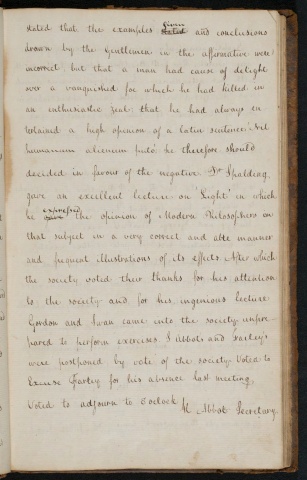 stated that the examples given and conclusions
drawn by the Gentlemen in the affirmative were
incorrect; but that a man had cause of delight
over a vanquished foe which he had killed in
an enthusiastic zeal; that he had always en
tertained a high opinion of a latin sentence; Nil
humanum alienum puto; he therefore should
decided in favour of the negative. Mr Spalding
gave an excellent lecture on 'Light' in which
he expressed the opinion of Modern Philosophers on
that subject in a very correct and able manner
and frequent illustrations of its effects. After which
the society voted their thanks for his attention
to the society and for his ingenious lecture
Gordon and Swan came into the society unpre-
pared to perform exercises. J Abbots and Farley's
were postponed by vote of the society. Voted to
Excuse Farley for his absence last meeting,
Voted to adjourn to 6 oclock
Abbot Secretary.